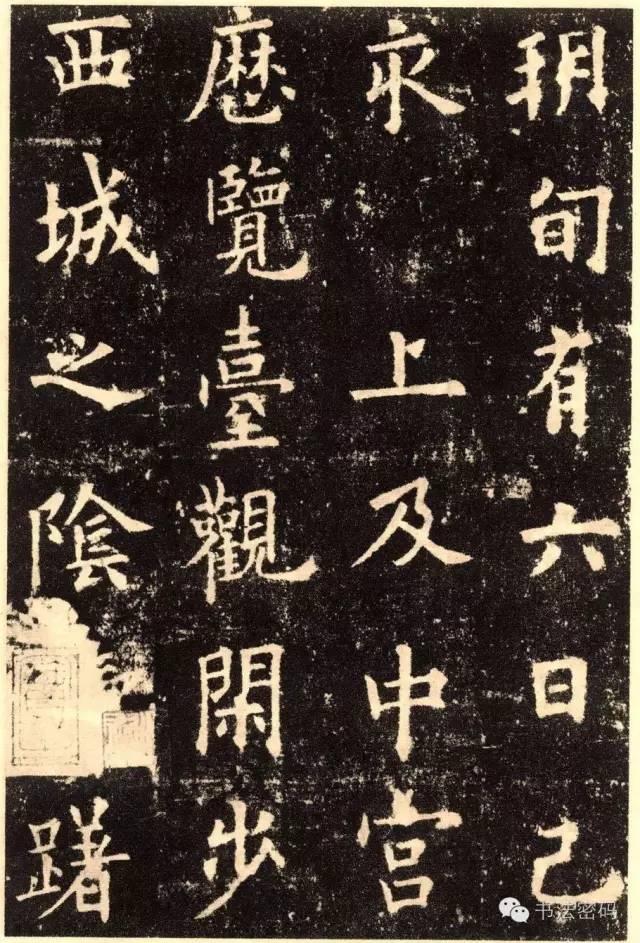 朔旬有六日己
亥上及中宮
歷覽臺觀閑步
西城之陰躇
书法密码